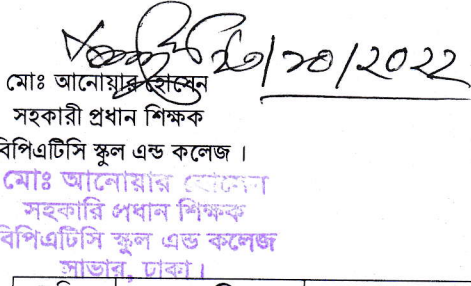 ২৩/১০/২০২২
মোঃ আনোয়ার হোসেন
সহকারী প্রধান শিক্ষক
বিপিএটিসি স্কুল এন্ড কলেজ ।
মোঃ আনোয়ার হোসেন
সহকারি প্রধান শিক্ষক
বিপিএটিসি স্কুল এন্ড কলেজ
সাভার, ঢাকা ।